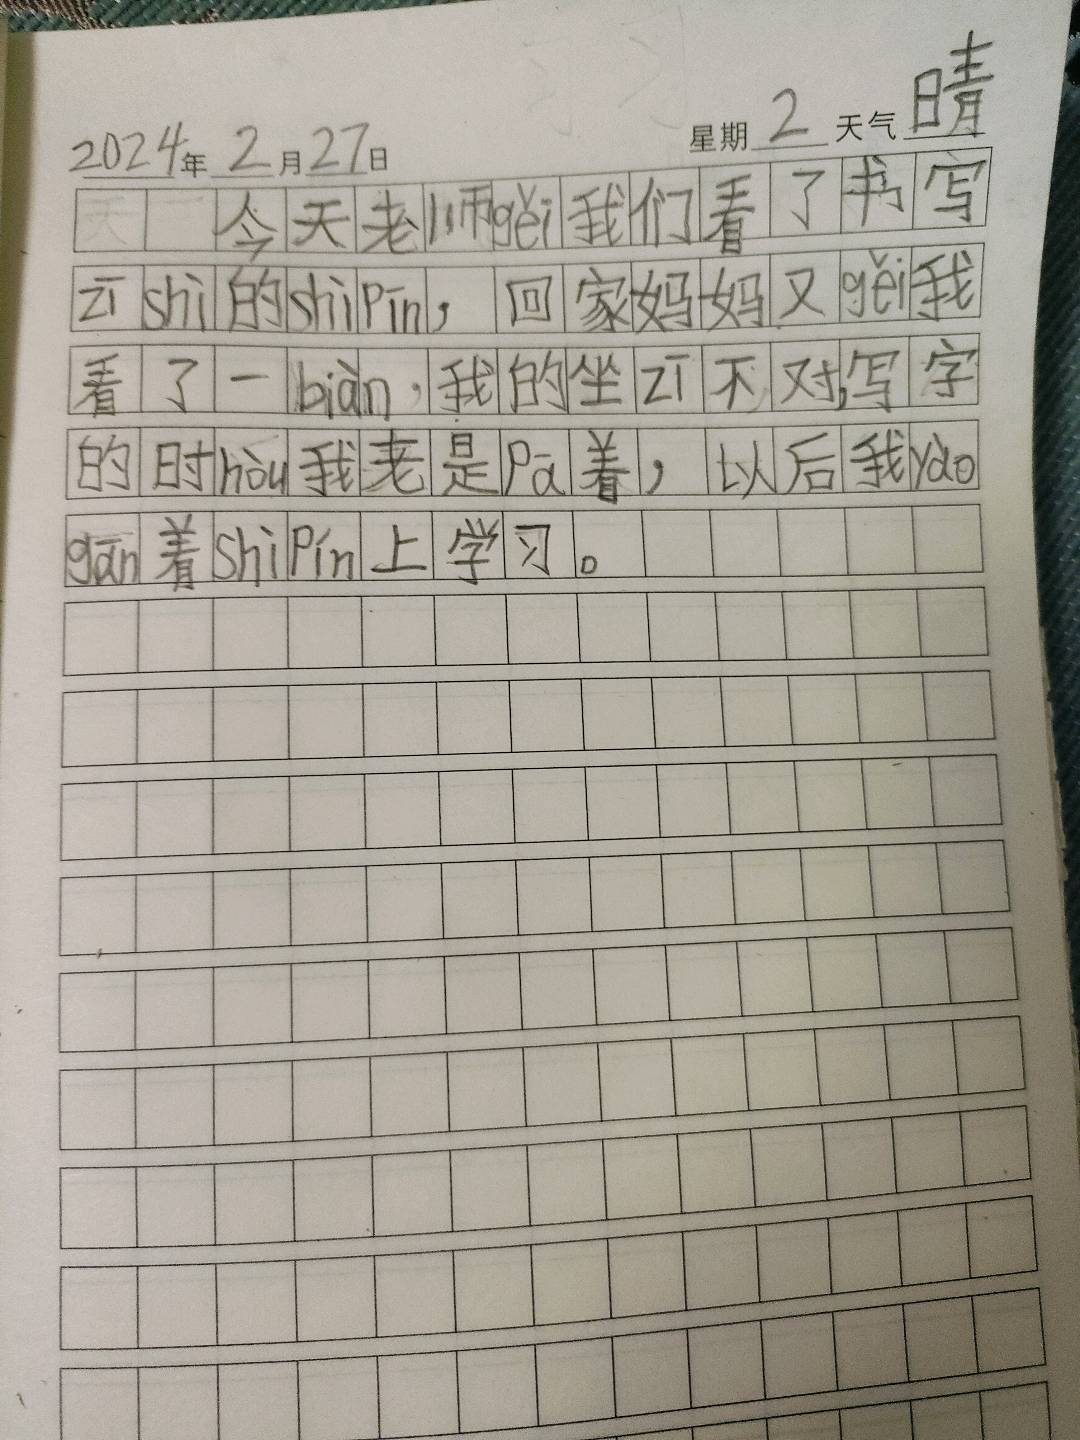 2024年 2月27日 星期 2 天气 晴
今天老师gěi我们看了书写
zī shì 的shì pīn，回家妈妈又gěi我
看了一biàn，我的坐zī不对，写字
的时hòu我老是pā着，以后我yào
gān着shì pín上学习。